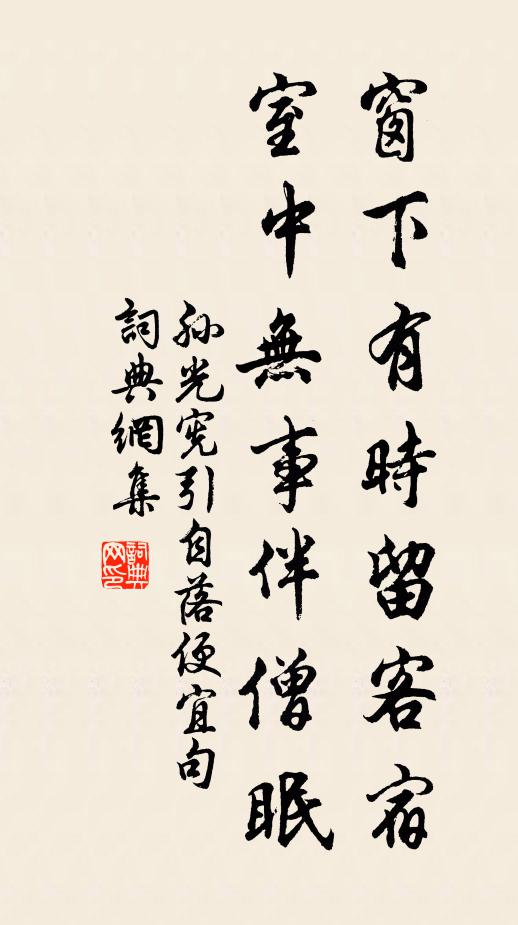 窗下有時留客宿
室中無事伴僧眠
孫光宪引自落便宜句
詞典網集
詞典網印